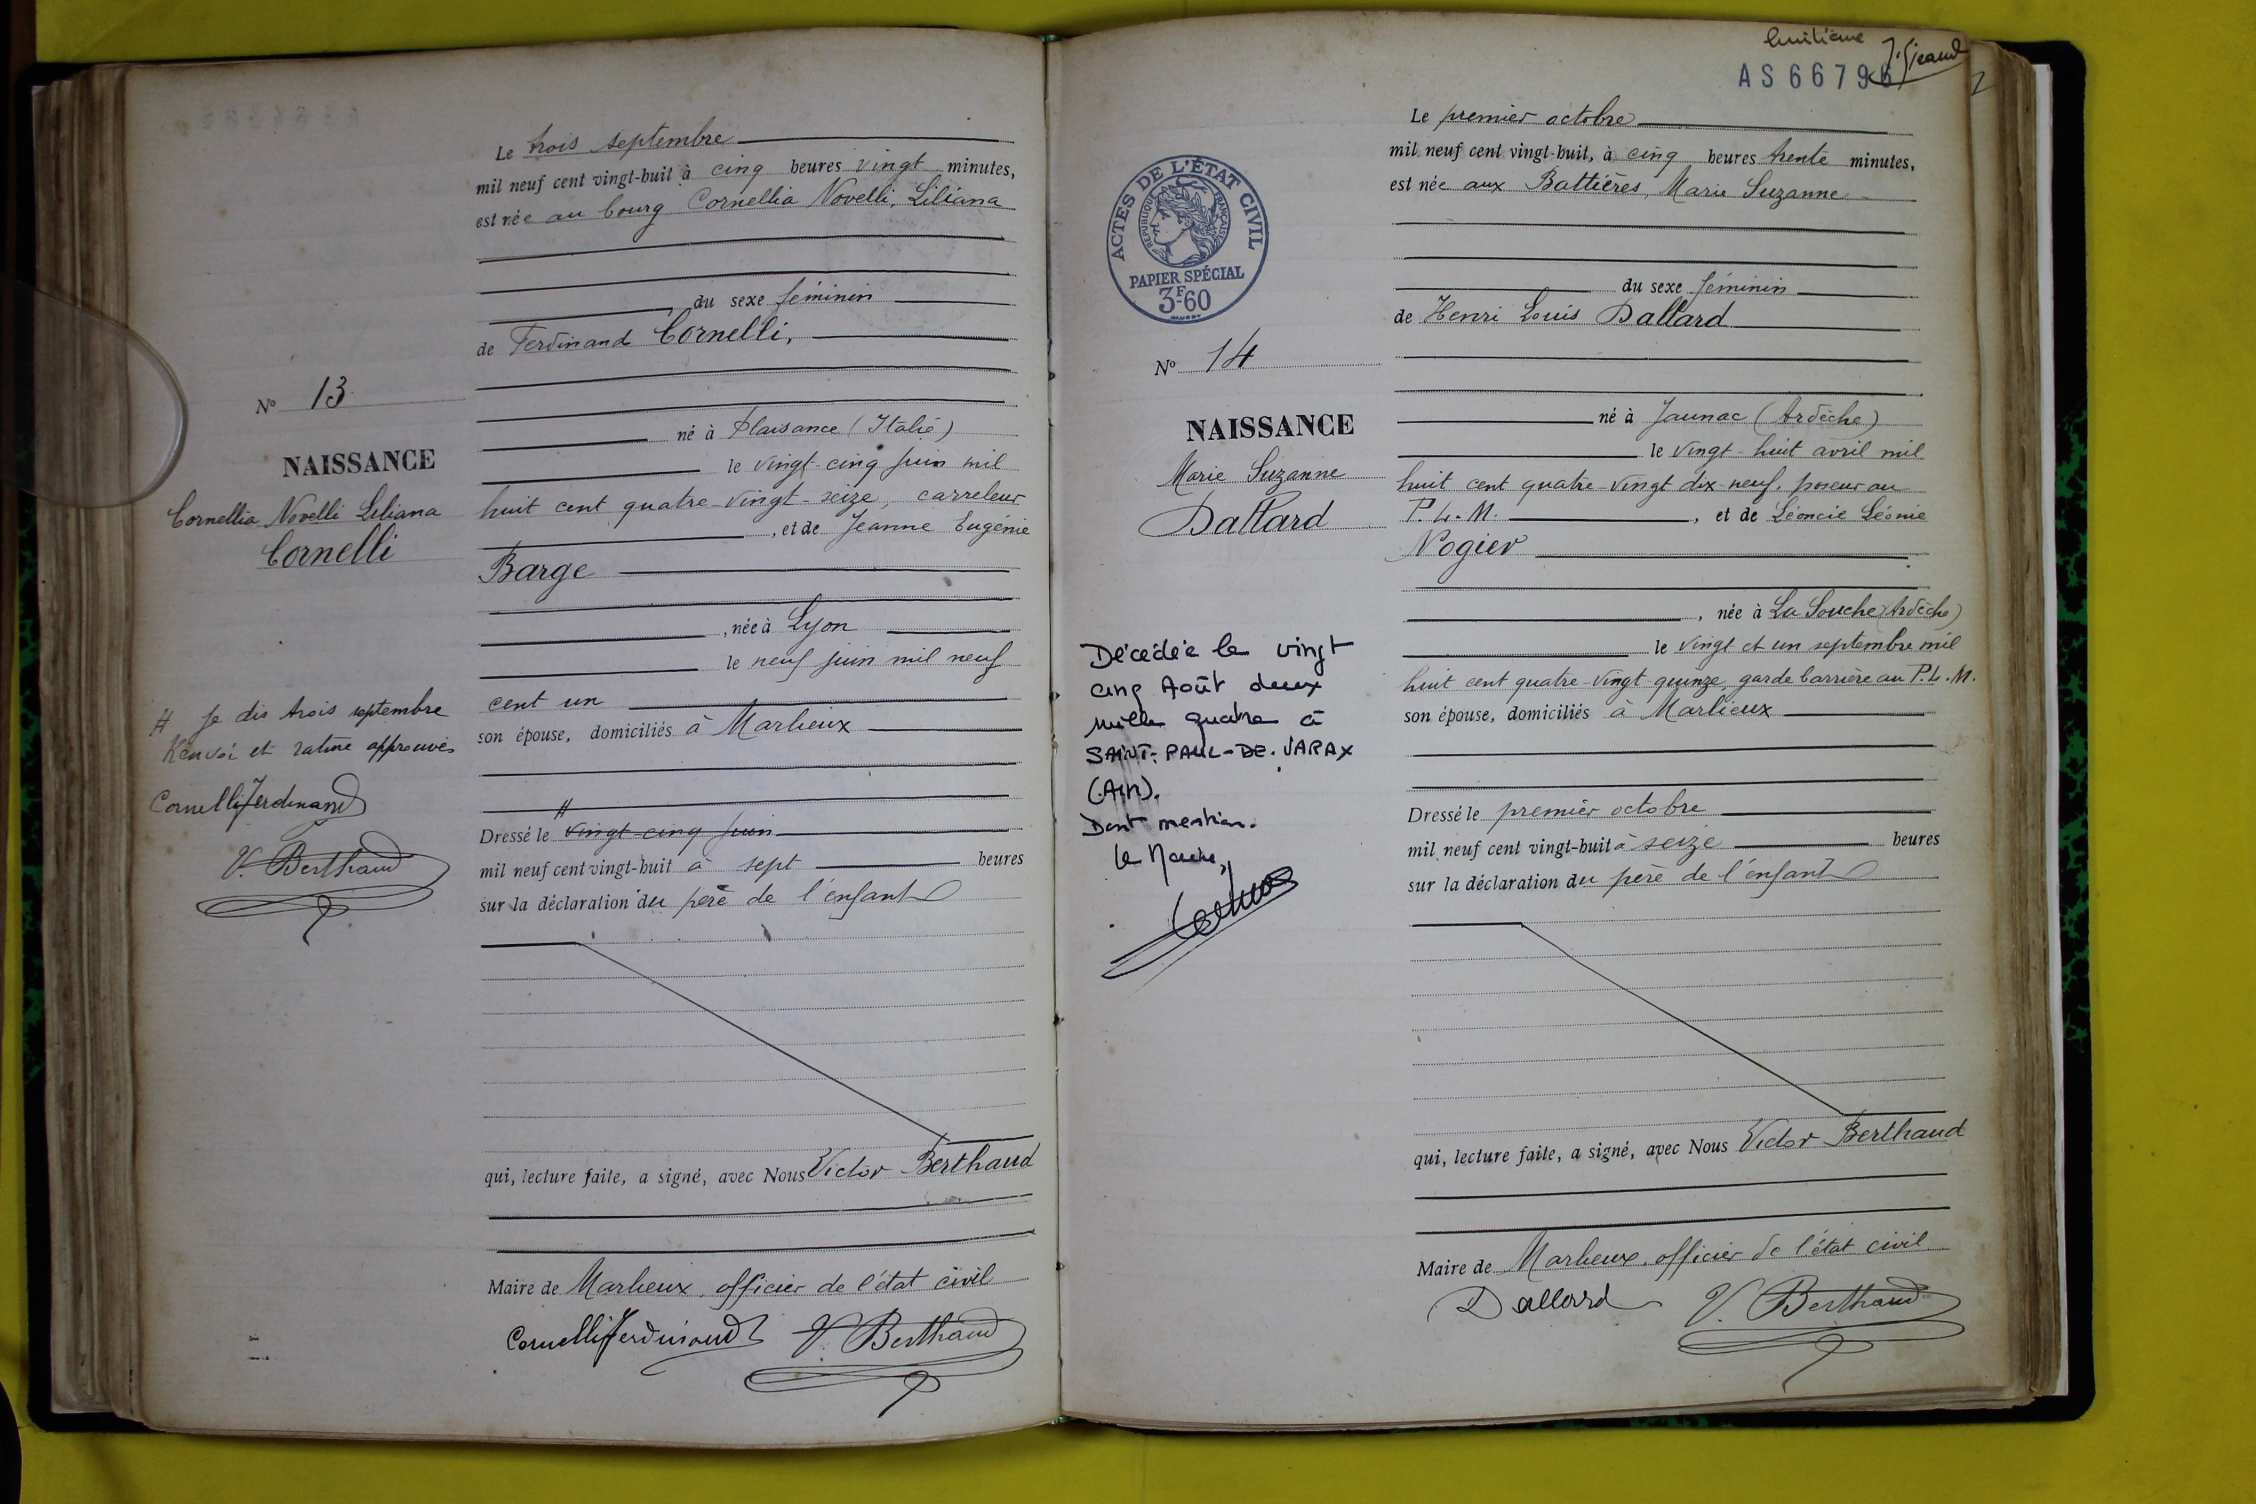 Le trois septembre
mil neuf cent vingt-huit à cinq heures vingt minutes,
est née au bourg Cornellia Novelli, Liliana
du sexe féminin
de Ferdinand Cornelli,
né à Plaisance (Italie)
le vingt-cinq juin mil
huit cent quatre-vingt-seize, carreleur
, et de Jeanne Eugénie
Barge
, née à Lyon
le neuf juin mil neuf
cent un
son épouse, domiciliés à Marlieux
#
Dressé le vingt-cinq juin
mil neuf cent vingt-huit à sept heures
sur la déclaration du père de l'enfant
qui, lecture faite, a signé, avec Nous Victor Berthaud
Maire de Marlieux, officier de l'état civil
Cornelli Ferdinand V. Berthaud
N° 13
NAISSANCE
Cornellia Novelli Liliana
Cornelli
# Je dis trois septembre
Renvoi et rature approuvés
Cornelli Ferdinand
V. Berthaud
huitième
AS66796
ACTES DE L'ÉTAT CIVIL
RÉPUBLIQUE FRANÇAISE
PAPIER SPÉCIAL
3F60
N° 14
NAISSANCE
Marie Suzanne
Dallard
Décédée le vingt
cinq Août deux
mille quatre à
SAINT-PAUL-DE-VARAX
(Ain).
Dont mention.
Le Maire,
Le premier octobre
mil neuf cent vingt-huit, à cinq heures trente minutes,
est née aux Battières, Marie Suzanne
du sexe féminin
de Henri Louis Dallard
né à Jaunac (Ardèche)
le vingt-huit avril mil
huit cent quatre-vingt dix-neuf, poseur au
P.L.M. , et de Léoncie Léonie
Nogier
, née à La Souche (Ardèche)
le vingt et un septembre mil
huit cent quatre-vingt quinze, garde barrière au P.L.M.
son épouse, domiciliés à Marlieux
Dressé le premier octobre
mil neuf cent vingt-huit à seize heures
sur la déclaration du père de l'enfant
qui, lecture faite, a signé, avec Nous Victor Berthaud
Maire de Marlieux, officier de l'état civil
Dallard V. Berthaud